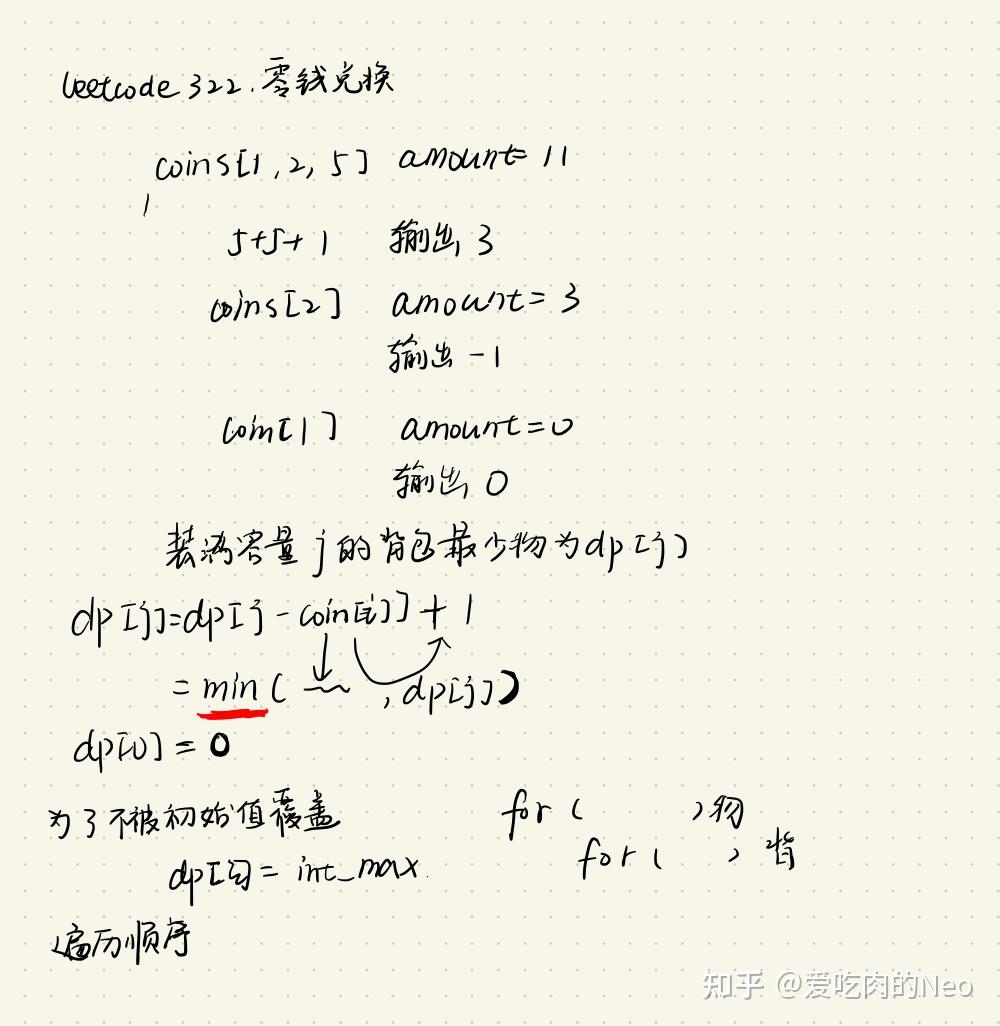 leetcode 322. 零钱兑换
coins[1, 2, 5] amount= 11
5+5+1 输出 3
coins[2] amount= 3
输出 -1
coin[1] amount=0
输出 0
装满容量 j 的背包最少物为dp[j]
dp[j]=dp[j - coin[i]] + 1
= min( , dp[j])
dp[0] = 0
为了不被初始值覆盖
dp[ ] = int_max
for ( )物
for ( ) 背
遍历顺序
知乎 @爱吃肉的Neo